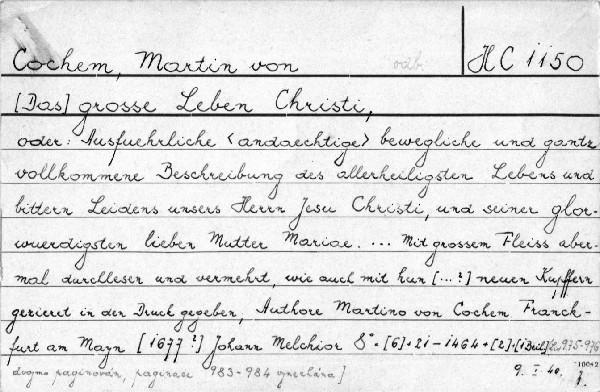 Cochem, Martin von odb. HC 1150
[Das] grosse Leben Christi,
oder: Ausfuehrliche <andaechtige> bewegliche und gantz
vollkommene Beschreibung des allerheiligsten Lebens und
bittern Leidens unsers Herrn Jesu Christi, und seiner glor-
wuerdigsten lieben Mutter Mariae. ... Mit grossem Fleiss aber-
mal durchlesen und vermehrt, wie auch mit hun [...?] neuen Kupffern
gezieret in den Druck gegeben, Authore Martino von Cochem. Franck-
furt am Mayn [1677?] Johann Melchior 8° [6]+21-1464+[2]
dvojmo paginován, paginace 983-984 vynechána] 9. I. 40.